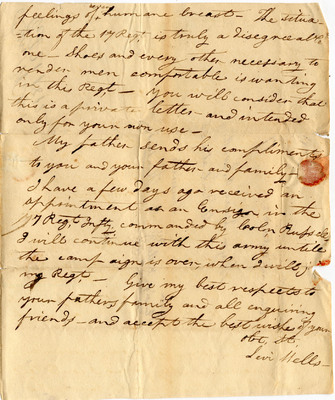 feelings of humane breast - The situa
tion of the 17 Regt is truly a disagreeable
one - Shoes and every other necessary to
render men comfortable is wanting
in the Regt - You will consider that
this is a private letter - and intended
only for your own use -
My father sends his compliments
to you and your father and family -
I have a few days ago received an
appointment as an Ensign in the
17 Regt Infty commanded by Coln
I will continue with this army untill
the campaign is over when I will
my Regt - Give my best respects to
your fathers family and all enquiring
friends - and accept the best wishes of your
obt. St.
Levi Wells -